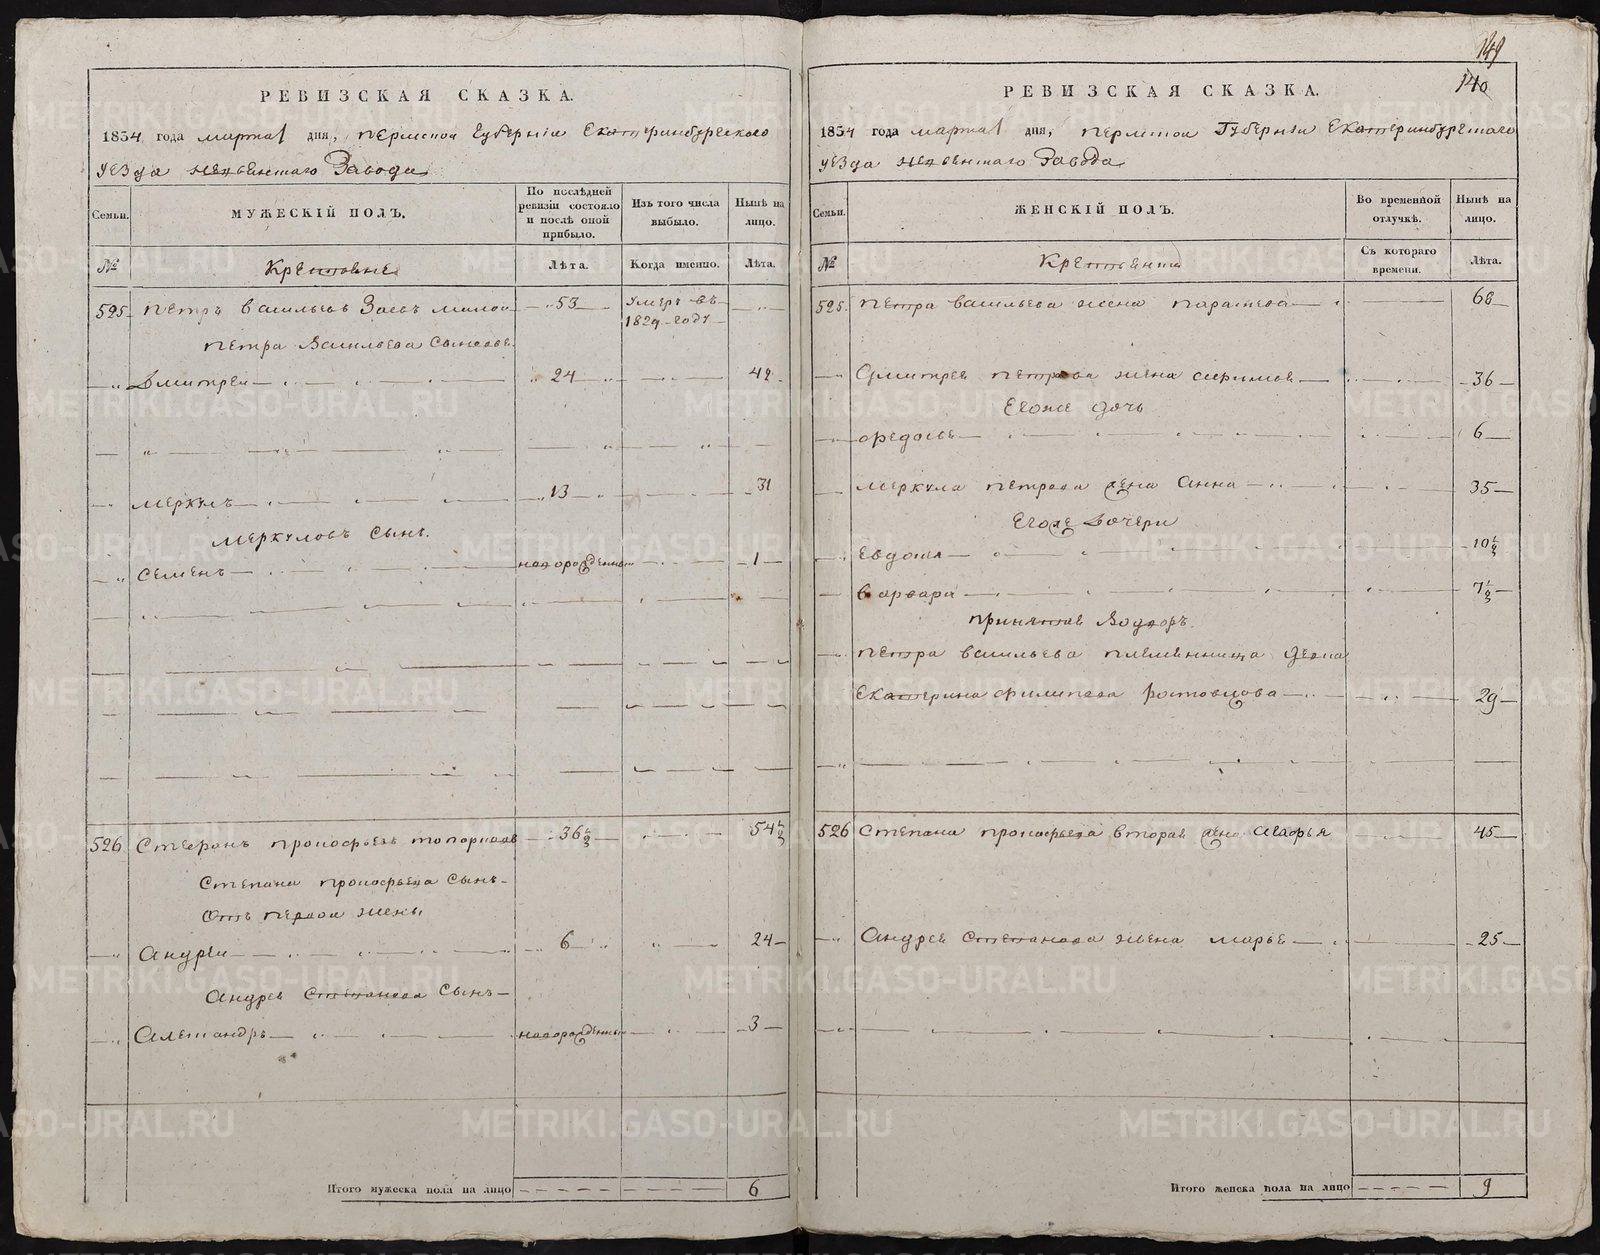 149
140
РЕВИЗСКАЯ СКАЗКА.
1834 года марта 1 дня, пермской Губерніи Екатеринбургскаго
уезда невьянскаго Завода
Семьи.
МУЖЕСКІЙ ПОЛЪ.
По послѣдней ревизіи состояло и послѣ оной прибыло.
Изъ того числа выбыло.
Нынѣ на лицо.
№
Крестьяне
Лѣта.
Когда именно.
Лѣта.
525 петръ васильевъ Заевъ 53 умеръ въ 1829 году
петра Васильева сыновье
Дмитреи 24 42
меркулъ 13 31
меркуловъ сынъ.
семенъ новорожденныи 1
526 Степанъ прокофьевъ топорковъ 36 1/2 54 1/2
Степана прокофьева сынъ
Отъ первои жены
Андреи 6 24
Андрея Степанова сынъ
Александръ новорожденныи 3
Итого мужеска пола на лицо 6
РЕВИЗСКАЯ СКАЗКА.
1834 года марта 1 дня, пермской Губерніи Екатеринбургскаго
уезда невьянскаго Завода
Семьи.
ЖЕНСКІЙ ПОЛЪ.
Во временной отлучкѣ.
Нынѣ на лицо.
№
Съ котораго времени.
Лѣта.
525. петра васильева жена 68
Дмитрея петрова жена 36
Егоже дочь
федосье 6
меркула петрова жена Анна 35
Егоже дочери
Евдокия 10 1/2
варвара 7 1/2
принятая
петра васильева племенница
Екатерина филипова 29
526 Степана прокофьева вторая жена 45
Андрея Степанова жена марье 25
Итого женска пола на лицо 9
METRIKI.GASO-URAL.RU